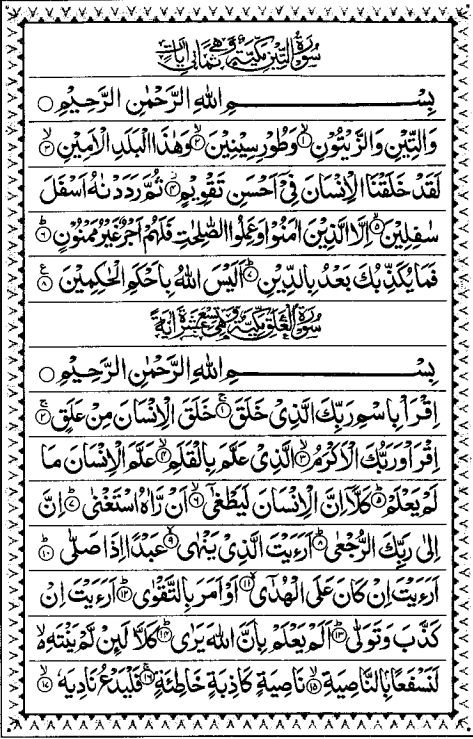 سُوْرَةُ التِّيْنِ مَكِّيَّةٌ وَّهِيَ ثَمَانِيْ اٰيَاتٍ
بِسْــــــــــــمِ اللهِ الرَّحْمٰنِ الرَّحِيْمِ ○
وَالتِّيْنِ وَالزَّيْتُوْنِ ۙ﴿۱﴾ وَطُوْرِ سِيْنِيْنَ ۙ﴿۲﴾ وَهٰذَا الْبَلَدِ الْاَمِيْنِ ۙ﴿۳﴾
لَقَدْ خَلَقْنَا الْاِنْسَانَ فِيْٓ اَحْسَنِ تَقْوِيْمٍ ﴿۴﴾ ثُمَّ رَدَدْنٰهُ اَسْفَلَ
سٰفِلِيْنَ ۙ﴿۵﴾ اِلَّا الَّذِيْنَ اٰمَنُوْا وَعَمِلُوا الصّٰلِحٰتِ فَلَهُمْ اَجْرٌ غَيْرُ مَمْنُوْنٍ ؕ﴿۶﴾
فَمَا يُكَذِّبُكَ بَعْدُ بِالدِّيْنِ ؕ﴿۷﴾ اَلَيْسَ اللهُ بِاَحْكَمِ الْحٰكِمِيْنَ ﴿۸﴾ ع
سُوْرَةُ الْعَلَقِ مَكِّيَّةٌ وَّهِيَ تِسْعَ عَشْرَةَ اٰيَةً
بِسْــــــــــــمِ اللهِ الرَّحْمٰنِ الرَّحِيْمِ ○
اِقْرَاْ بِاسْمِ رَبِّكَ الَّذِيْ خَلَقَ ۚ﴿۱﴾ خَلَقَ الْاِنْسَانَ مِنْ عَلَقٍ ۚ﴿۲﴾
اِقْرَاْ وَرَبُّكَ الْاَكْرَمُ ۙ﴿۳﴾ الَّذِيْ عَلَّمَ بِالْقَلَمِ ۙ﴿۴﴾ عَلَّمَ الْاِنْسَانَ مَا
لَمْ يَعْلَمْ ؕ﴿۵﴾ كَلَّاۤ اِنَّ الْاِنْسَانَ لَيَطْغٰىٓ ۙ﴿۶﴾ اَنْ رَّاٰهُ اسْتَغْنٰى ؕ﴿۷﴾ اِنَّ
اِلٰى رَبِّكَ الرُّجْعٰى ؕ﴿۸﴾ اَرَءَيْتَ الَّذِيْ يَنْهٰى ۙ﴿۹﴾ عَبْدًا اِذَا صَلّٰى ؕ﴿۱۰﴾
اَرَءَيْتَ اِنْ كَانَ عَلَى الْهُدٰىٓ ۙ﴿۱۱﴾ اَوْ اَمَرَ بِالتَّقْوٰى ؕ﴿۱۲﴾ اَرَءَيْتَ اِنْ
كَذَّبَ وَتَوَلّٰى ؕ﴿۱۳﴾ اَلَمْ يَعْلَمْ بِاَنَّ اللهَ يَرٰى ؕ﴿۱۴﴾ كَلَّا لَئِنْ لَّمْ يَنْتَهِ ۙ
لَنَسْفَعًا بِالنَّاصِيَةِ ۙ﴿۱۵﴾ نَاصِيَةٍ كَاذِبَةٍ خَاطِئَةٍ ۚ﴿۱۶﴾ فَلْيَدْعُ نَادِيَهٗ ۙ﴿۱۷﴾